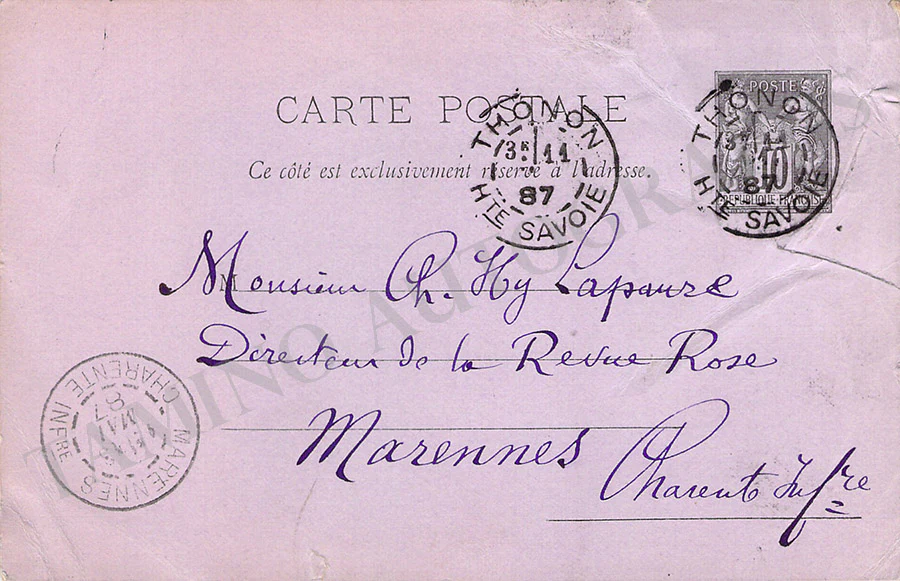 CARTE POSTALE
Ce côté est exclusivement réservé à l'adresse.
THONON
3E 11
87
HTE SAVOIE
POSTES
10
REPUBLIQUE FRANÇAISE
THONON
3E 11
87
HTE SAVOIE
Monsieur Ch. Hy Lapauze
Directeur de la Revue Rose
Marennes
Charente Infre
MARENNES
MAI
87
CHARENTE INFRE
TAMINO AUTOGRAPHS